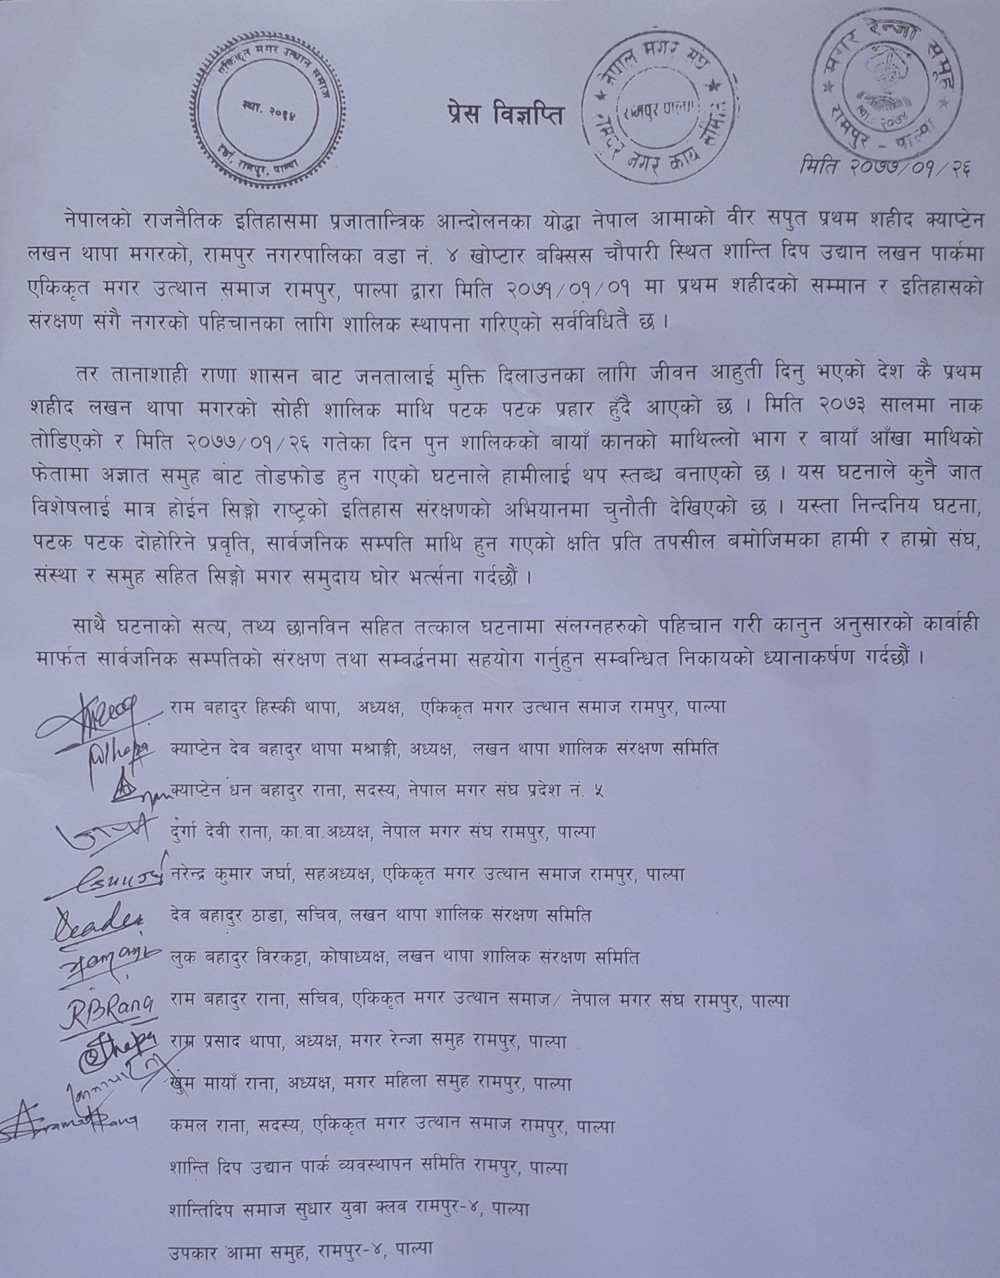 एकिकृत मगर उत्थान समाज
स्था. २०६४
रामपुर, पाल्पा
प्रेस विज्ञप्ति
नेपाल मगर संघ
रामपुर पाल्पा
रामपुर नगर कार्य समिति
मगर रेन्जा समूह
स्था. २०७४
रामपुर - पाल्पा
मिति २०७७/०१/२६
नेपालको राजनैतिक इतिहासमा प्रजातान्त्रिक आन्दोलनका योद्धा नेपाल आमाको वीर सपुत प्रथम शहीद क्याप्टेन
लखन थापा मगरको, रामपुर नगरपालिका वडा नं. ४ खोप्टार बक्सिस चौपारी स्थित शान्ति दिप उद्यान लखन पार्कमा
एकिकृत मगर उत्थान समाज रामपुर, पाल्पा द्वारा मिति २०७१/०१/०१ मा प्रथम शहीदको सम्मान र इतिहासको
संरक्षण संगै नगरको पहिचानका लागि शालिक स्थापना गरिएको सर्वविधितै छ ।
तर तानाशाही राणा शासन बाट जनतालाई मुक्ति दिलाउनका लागि जीवन आहुती दिनु भएको देश कै प्रथम
शहीद लखन थापा मगरको सोही शालिक माथि पटक पटक प्रहार हुँदै आएको छ । मिति २०७३ सालमा नाक
तोडिएको र मिति २०७७/०१/२६ गतेका दिन पुन शालिकको बायाँ कानको माथिल्लो भाग र बायाँ आँखा माथिको
फेतामा अज्ञात समुह बांट तोडफोड हुन गएको घटनाले हामीलाई थप स्तब्ध बनाएको छ । यस घटनाले कुनै जात
विशेषलाई मात्र होईन सिङ्गो राष्ट्रको इतिहास संरक्षणको अभियानमा चुनौती देखिएको छ । यस्ता निन्दनिय घटना,
पटक पटक दोहोरिने प्रवृति, सार्वजनिक सम्पति माथि हुन गएको क्षति प्रति तपसील बमोजिमका हामी र हाम्रो संघ,
संस्था र समुह सहित सिङ्गो मगर समुदाय घोर भर्त्सना गर्दछौं ।
साथै घटनाको सत्य, तथ्य छानविन सहित तत्काल घटनामा संलग्नहरुको पहिचान गरी कानुन अनुसारको कार्वाही
मार्फत सार्वजनिक सम्पतिको संरक्षण तथा सम्वर्द्धनमा सहयोग गर्नुहुन सम्बन्धित निकायको ध्यानाकर्षण गर्दछौं ।
राम बहादुर हिस्की थापा, अध्यक्ष, एकिकृत मगर उत्थान समाज रामपुर, पाल्पा
क्याप्टेन देव बहादुर थापा मश्राङ्गी, अध्यक्ष, लखन थापा शालिक संरक्षण समिति
क्याप्टेन धन बहादुर राना, सदस्य, नेपाल मगर संघ प्रदेश नं. ५
दुर्गा देवी राना, का.वा.अध्यक्ष, नेपाल मगर संघ रामपुर, पाल्पा
नरेन्द्र कुमार जर्घा, सहअध्यक्ष, एकिकृत मगर उत्थान समाज रामपुर, पाल्पा
देव बहादुर ठाडा, सचिव, लखन थापा शालिक संरक्षण समिति
लुक बहादुर विरकट्टा, कोषाध्यक्ष, लखन थापा शालिक संरक्षण समिति
RBRana राम बहादुर राना, सचिव, एकिकृत मगर उत्थान समाज/ नेपाल मगर संघ रामपुर, पाल्पा
Thapa राम प्रसाद थापा, अध्यक्ष, मगर रेन्जा समुह रामपुर, पाल्पा
खुम मायाँ राना, अध्यक्ष, मगर महिला समुह रामपुर, पाल्पा
कमल राना, सदस्य, एकिकृत मगर उत्थान समाज रामपुर, पाल्पा
शान्ति दिप उद्यान पार्क व्यवस्थापन समिति रामपुर, पाल्पा
शान्तिदिप समाज सुधार युवा क्लव रामपुर-४, पाल्पा
उपकार आमा समुह, रामपुर-४, पाल्पा